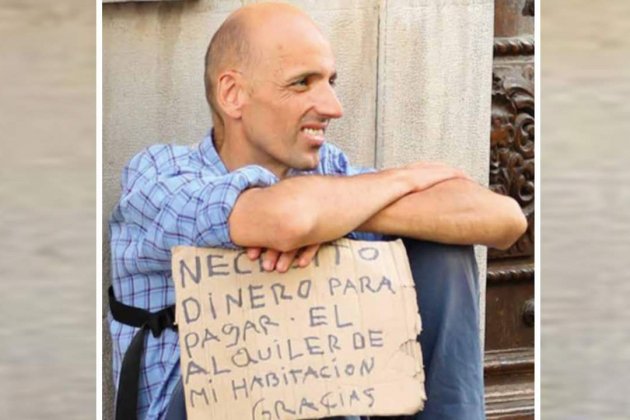 NECESITO
DINERO PARA
PAGAR. EL
ALQUILER DE
MI HABITACION
GRACIAS